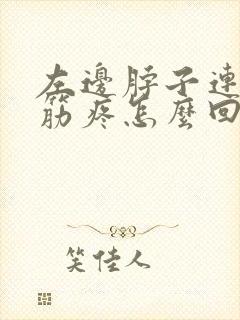 左邊脖子連
筋疼怎麼回
笑佳人